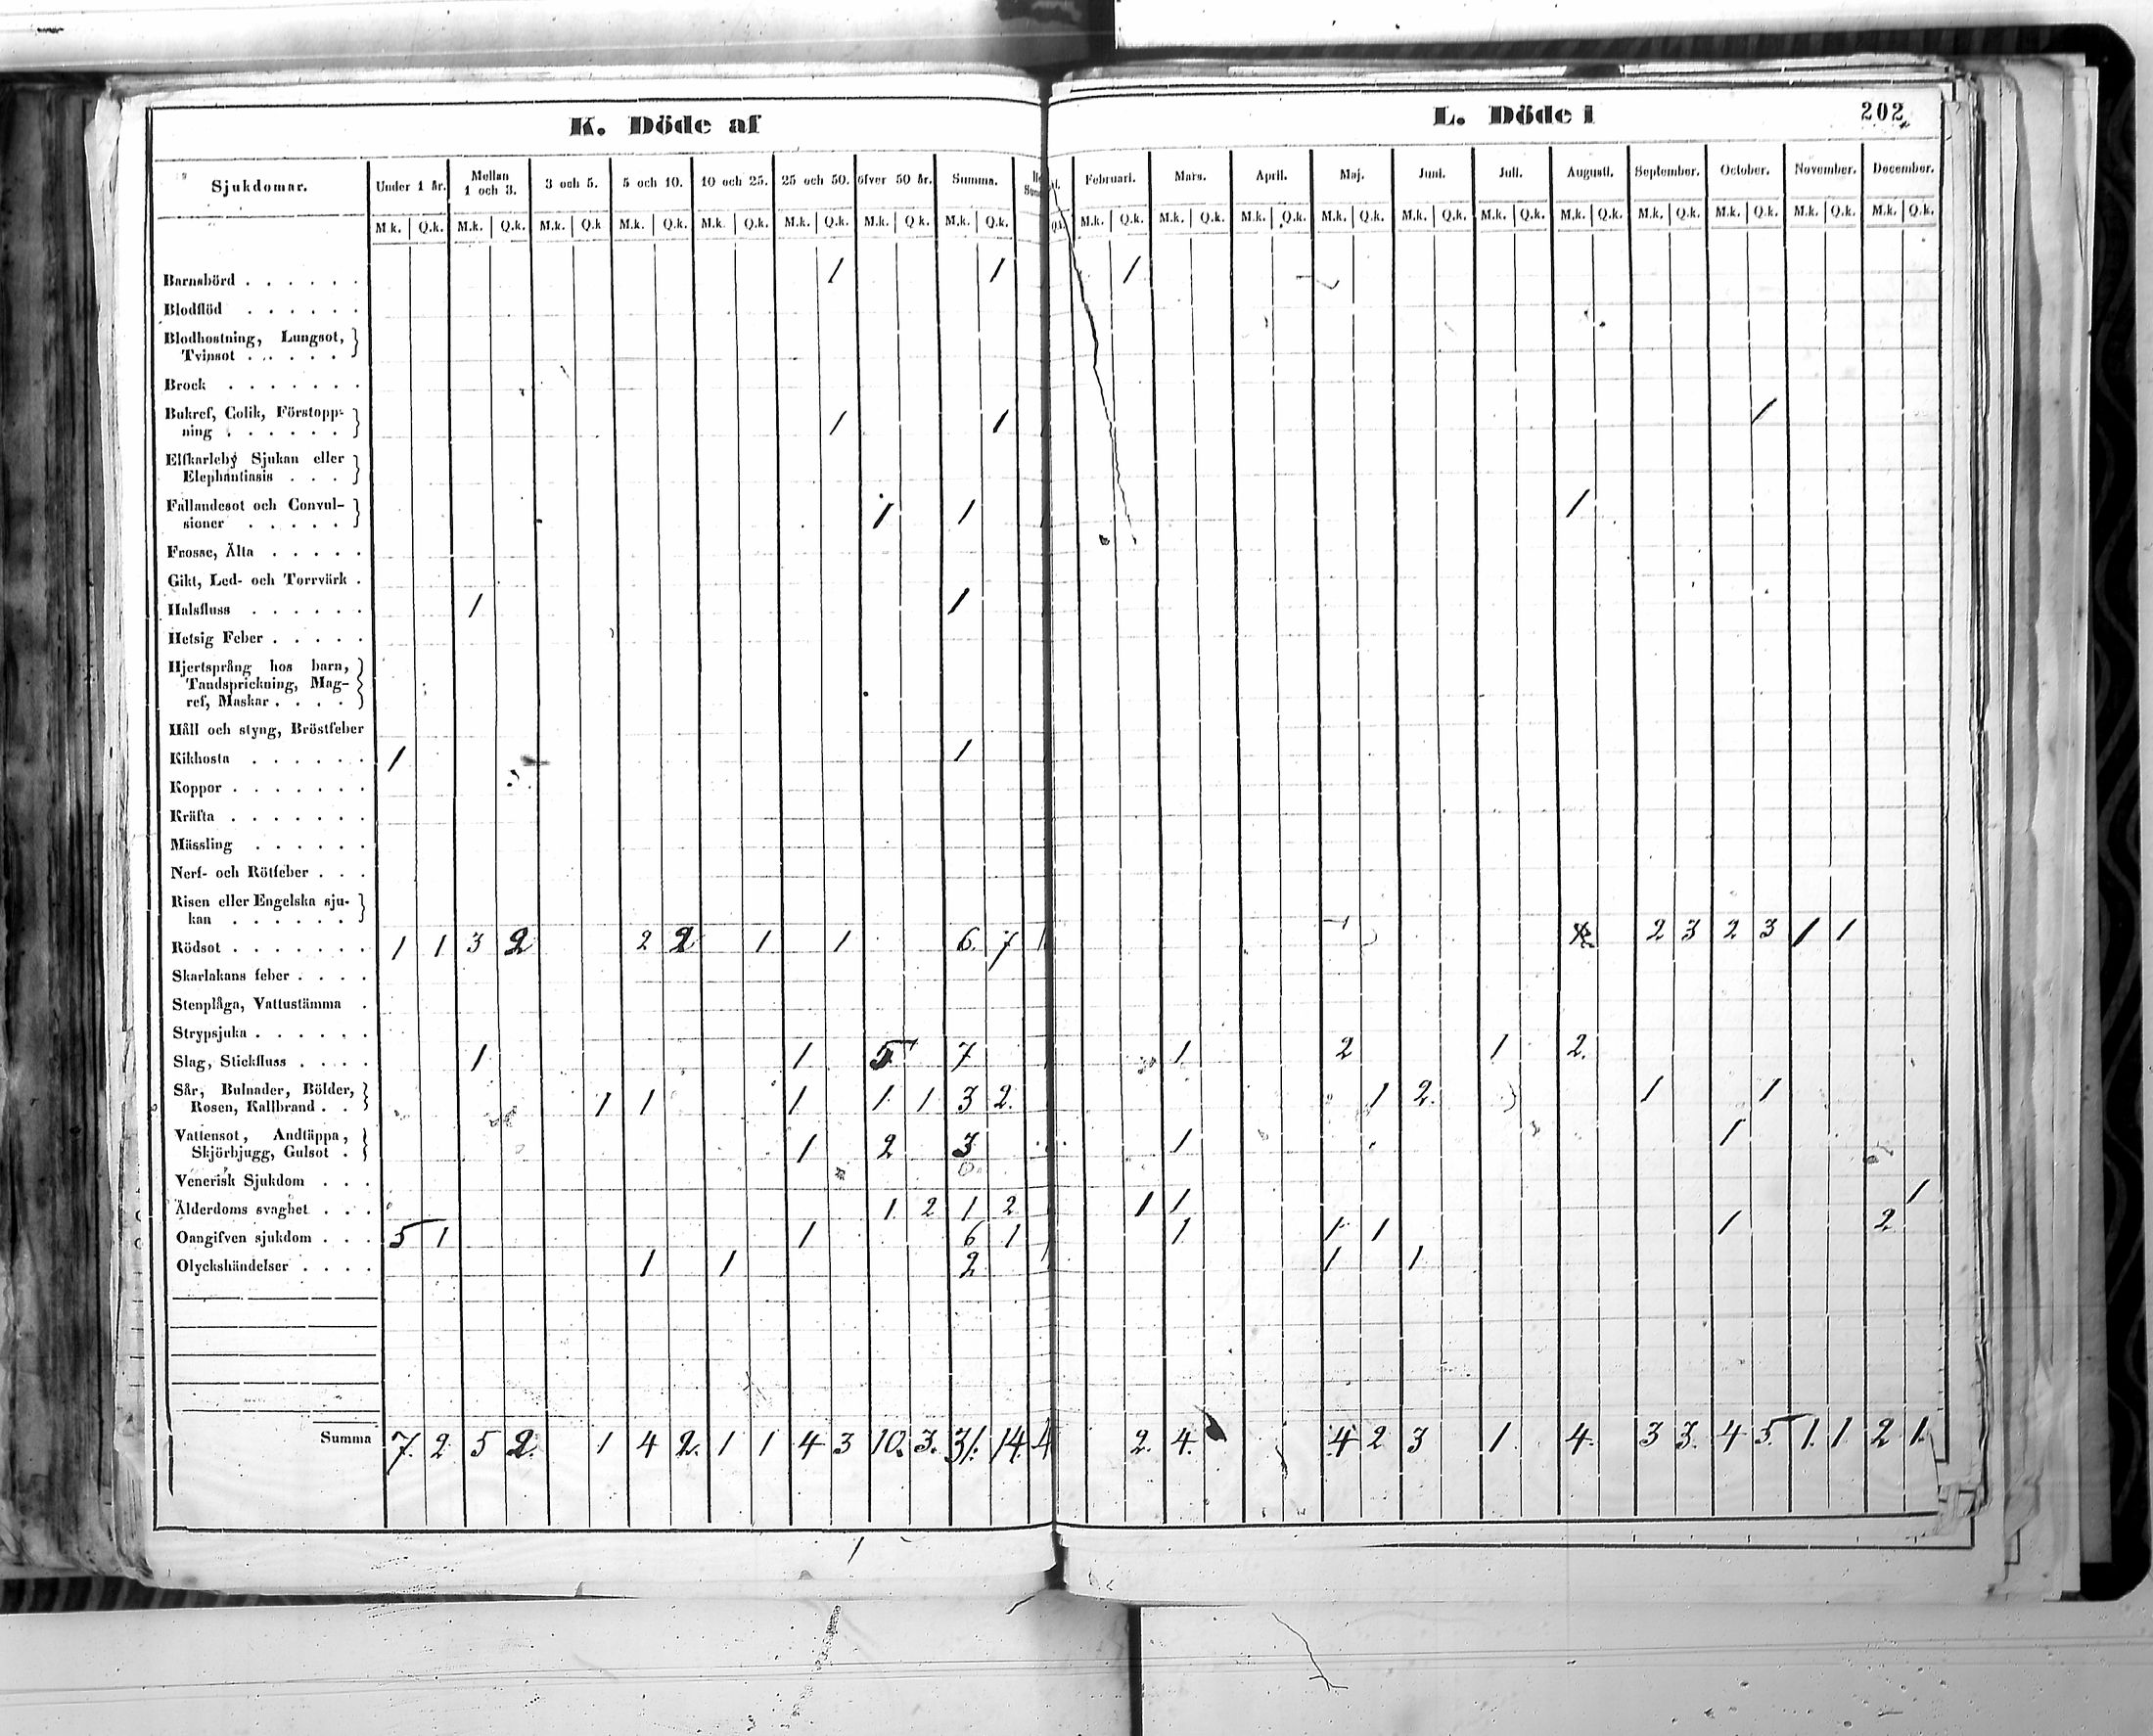 K. Döde af
L. Döde i
202
Sjukdomar.
Under 1 år.
Mellan 1 och 3.
3 och 5.
5 och 10.
10 och 25.
25 och 50.
öfver 50 år.
Summa.
Februari.
Mars.
April.
Maj.
Juni.
Juli.
Augusti.
September.
October.
November.
December.
M.k. Q.k. M.k. Q.k. M.k. Q.k M.k. Q.k. M.k. Q.k. M.k. Q.k. M.k. Q.k. M.k. Q.k. Q.k. M.k. Q.k. M.k. Q.k. M.k. Q.k. M.k. Q.k. M.k. Q.k. M.k. Q.k. M.k. Q.k. M.k. Q.k. M.k. Q.k. M.k. Q.k. M.k. Q.k.
Barnsbörd . . . . . . 1 1 1
Blodflöd . . . . . .
Blodhostning, Lungsot,
Tvinsot . . . . . .
Brock . . . . . . .
Bukref, Colik, Förstopp-
ning . . . . . . 1 1 1
Elfkarleby Sjukan eller
Elephantiasis . . .
Fallandesot och Convul-
sioner . . . . . 1 1 1
Frosse, Älta . . . . .
Gikt, Led- och Torrvärk .
Halsfluss . . . . . . 1 1
Hetsig Feber . . . . .
Hjertsprång hos barn,
Tandsprickning, Mag-
ref, Maskar . . . .
Håll och styng, Bröstfeber
Kikhosta . . . . . . 1 1
Koppor . . . . . . .
Kräfta . . . . . . .
Mässling . . . . . .
Nerf- och Rötfeber . . .
Risen eller Engelska sju-
kan . . . . . .
Rödsot . . . . . . . 1 1 3 2 2 2 1 1 6 7 2 3 2 3 1 1
Skarlakans feber . . . .
Stenplåga, Vattustämma .
Strypsjuka . . . . . .
Slag, Stickfluss . . . . 1 1 5 7 1 2 1 2.
Sår, Bulnader, Bölder,
Rosen, Kallbrand . . 1 1 1 1 1 3 2. 1 2. 1 1
Vattensot, Andtäppa,
Skjörbjugg, Gulsot . 1 2 3 1 1
Venerisk Sjukdom . . .
Ålderdoms svaghet . . . 1 2 1 2 1 1 1
Oangifven sjukdom . . . 5 1 1 6 1 1 1 1 1 2
Olyckshändelser . . . . 1 1 2 1 1
Summa 7. 2 5 2. 1 4 2. 1 1 4 3 10. 3. 31. 14 2. 4. 4 2 3 1 4. 3 3. 4 5. 1. 1. 2 1.